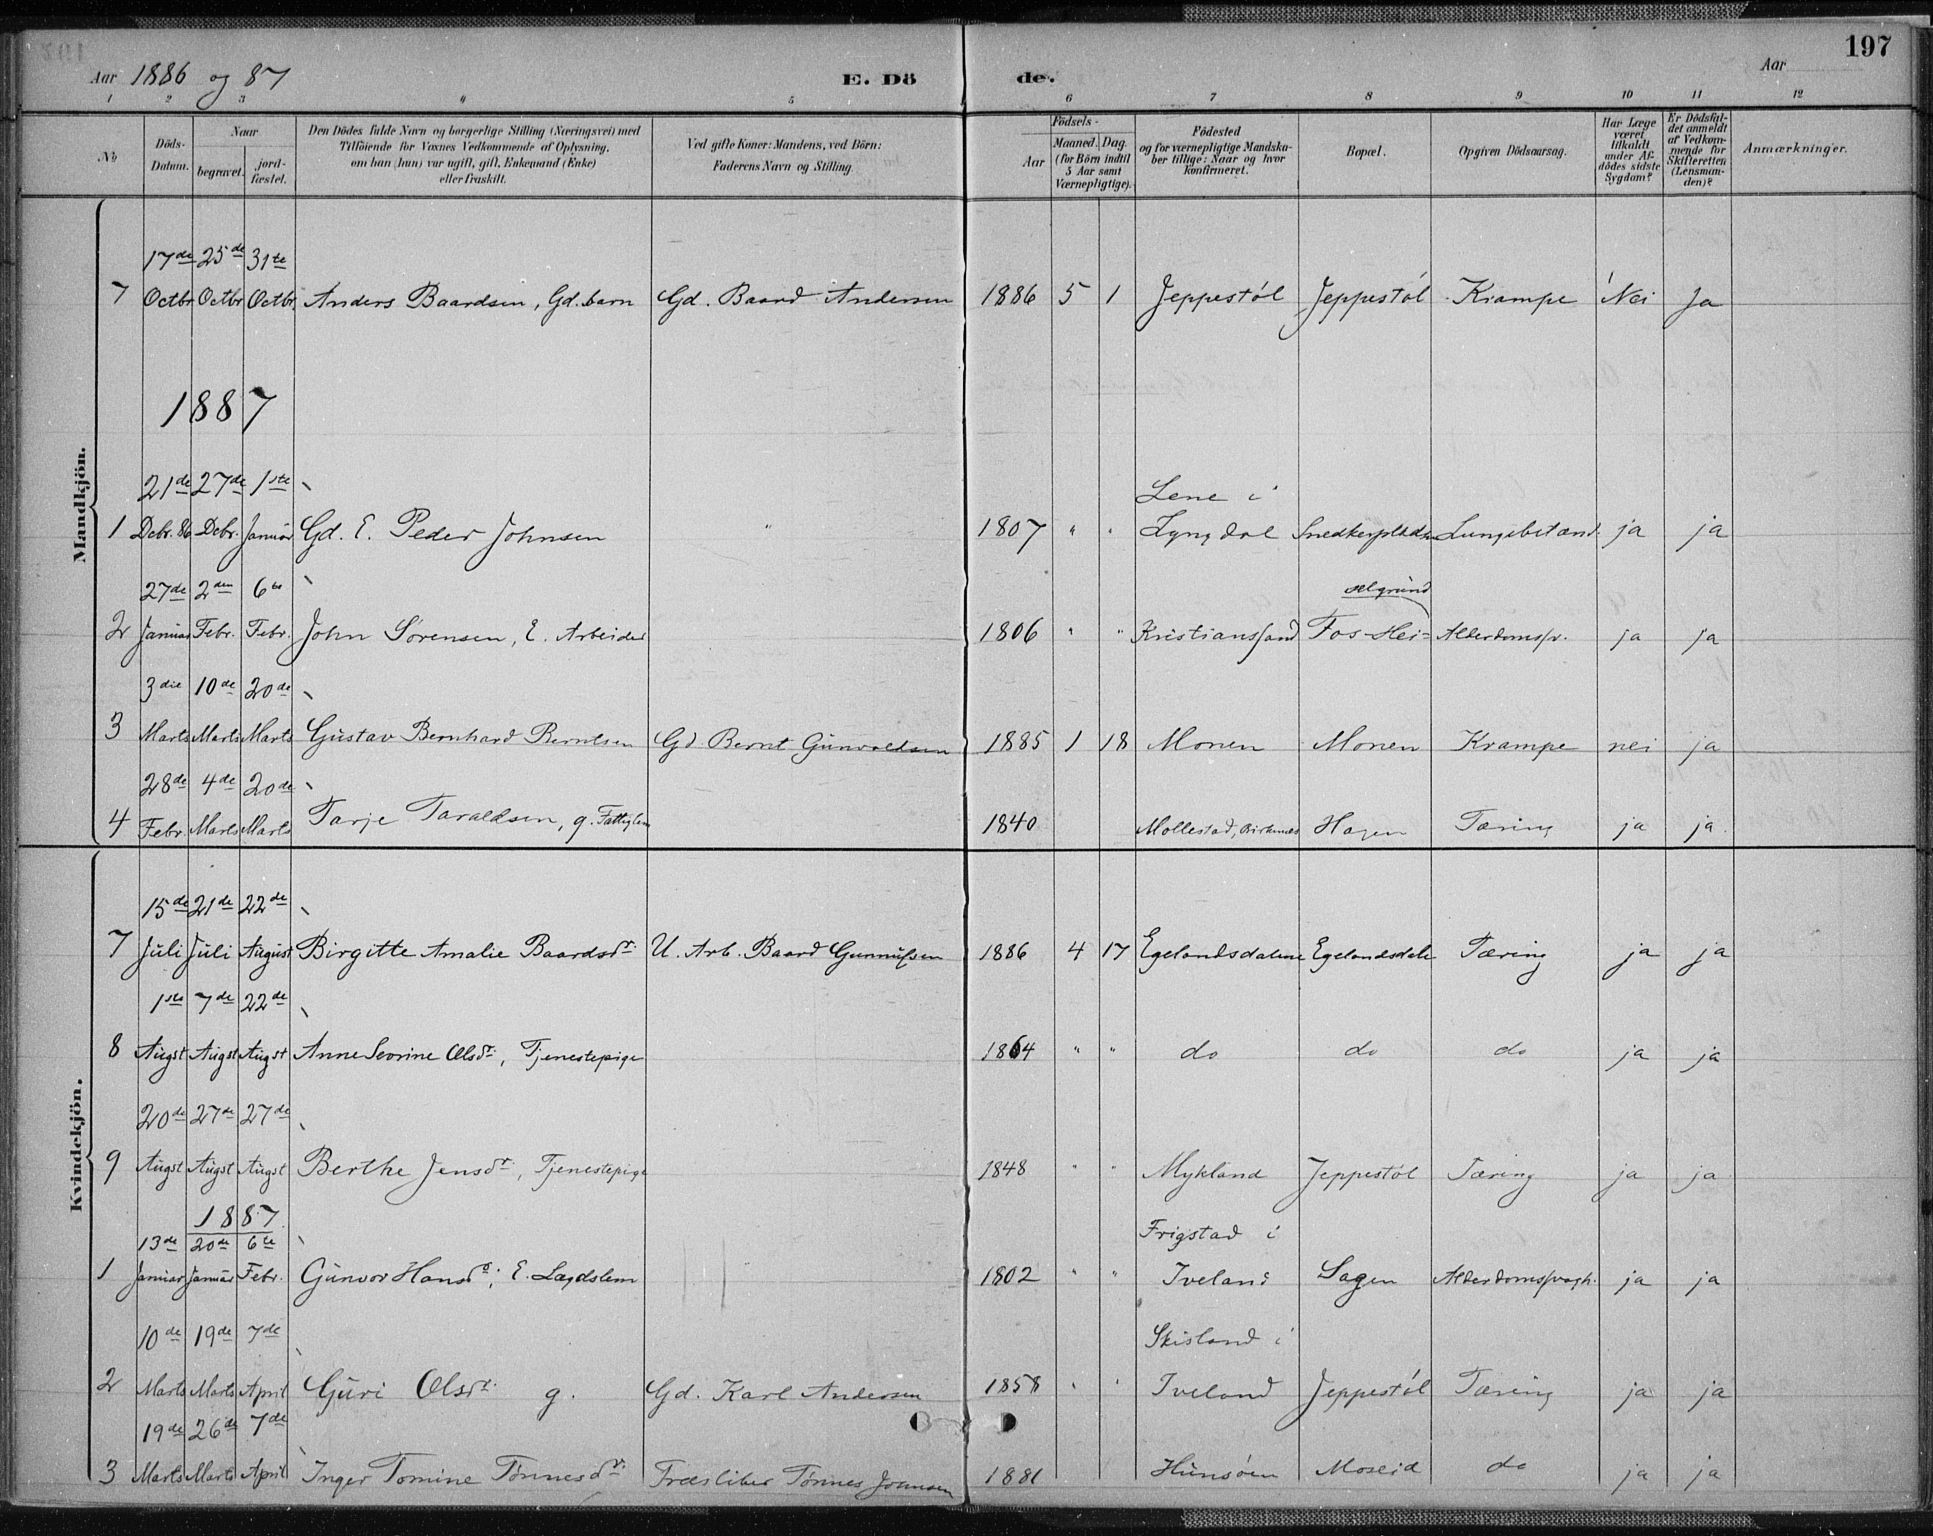 197
Aar 1886 og 87 E. Dö de. Aar
1 2 3 4 5 6 7 8 9 10 11 12
No
Döds-Datum.
Naar begravet. jordfæstet.
Den Dödes fulde Navn og borgerlige Stilling (Næringsvei) med
Tilföiende for Voxnes Vedkommende af Oplysning,
om han (hun) var ugift, gift, Enkemand (Enke)
eller fraskilt.
Ved gifte Koner: Mandens, ved Börn:
Faderens Navn og Stilling.
Födsels-
Aar Maaned. Dag.
(for Börn indtil
5 Aar samt
Værnepligtige).
Födested
og for værnepligtige Mandska-
ber tillige: Naar og hvor
konfirmeret.
Bopæl.
Opgiven Dödsaarsag.
Har Læge
været
tilkaldt
under Af-
dödes sidste
Sygdom?
Er Dödsfal-
det anmeldt
af Vedkom-
mende for
Skifteretten
(Lensman-
den)?
Anmærkninger.
Mandkjön.
17de 25de 31te
7 Octbr Octbr Octbr. Anders Baardsen, Gd. barn Gd. Baard Andersen 1886 5 1 Jeppestöl Jeppestöl Krampe Nei Ja
1887
21de 27de 1ste Lene i
1 Decbr. 86 Decbr. Januar Gd. E. Peder Johnsen " 1807 " " Lyngdal Snedkerpladsen Lungebetænd. ja ja
27de 2den 6te
2 Januar Febr. Febr. John Sørensen, E. Arbeider 1806 " " Kristianssand Fos-Hei- Alderdomssv. ja ja
3die 10de 20de
3 Marts Marts Marts Gustav Bernhard Berntsen Gd Bernt Gunvaldsen 1885 1 18 Monen Monen Krampe nei ja
28de 4de 20de
4 Febr. Marts Marts Tarje Taraldsen, g. Fattiglem 1840 Mollestad, Birkenes Hagen Tæring ja ja.
Kvindekjön.
15de 21de 22de
7 Juli Juli August Birgitte Amalie Baardsdr. U. Arb. Baard Gunnufsen 1886 4 17 Egelandsdalene Egelandsdale Tæring ja ja
1ste 7de 22de
8 Augst Augst Augst Anne Sevrine Olsdr., Tjenestepige 1864 " " do do do ja ja
20de 27de 27de
9 Augst Augst Augst Berthe Jensdr., Tjenestepige 1848 " " Mykland Jeppestöl Tæring ja ja
1887
13de 20de 6te Frigstad i
1 Januar Januar Febr. Gunvor Hansdr., E. Lægdslem 1802 " " Iveland Sagen Alderdomssvagh. ja ja
10de 19de 7de Skisland i
2 Marts Marts April Guri Olsdr. g. Gd. Karl Andersen 1858 " " Iveland Jeppestöl Tæring ja ja
19de 26de 7de
3 Marts Marts April Inger Tomine Tönnesdr. Træsliber Tönnes Johnsen 1881 Hunsöen Moseid do ja ja